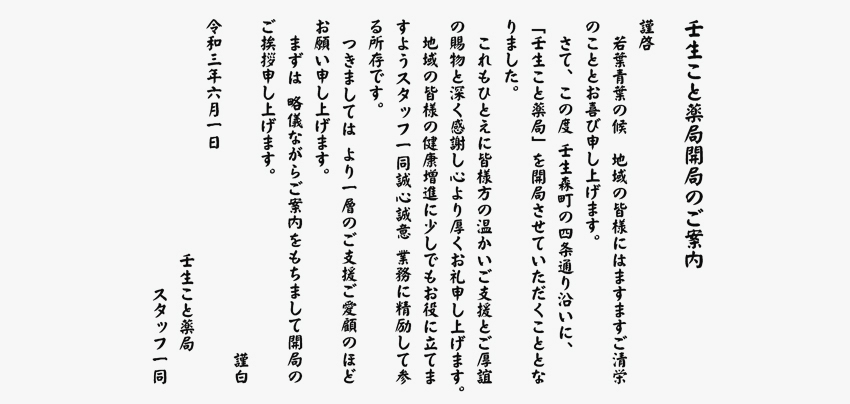 壬生こと薬局開局のご案内
謹啓
若葉青葉の候　地域の皆様にはますますご清栄
のこととお喜び申し上げます。
さて、この度 壬生森町の四条通り沿いに、
「壬生こと薬局」を開局させていただくこととな
りました。
これもひとえに皆様方の温かいご支援とご厚誼
の賜物と深く感謝し心より厚くお礼申し上げます。
地域の皆様の健康増進に少しでもお役に立てま
すようスタッフ一同誠心誠意 業務に精励して参
る所存です。
つきましては より一層のご支援ご愛顧のほど
お願い申し上げます。
まずは 略儀ながらご案内をもちまして開局の
ご挨拶申し上げます。
謹白
令和三年六月一日
壬生こと薬局
スタッフ一同